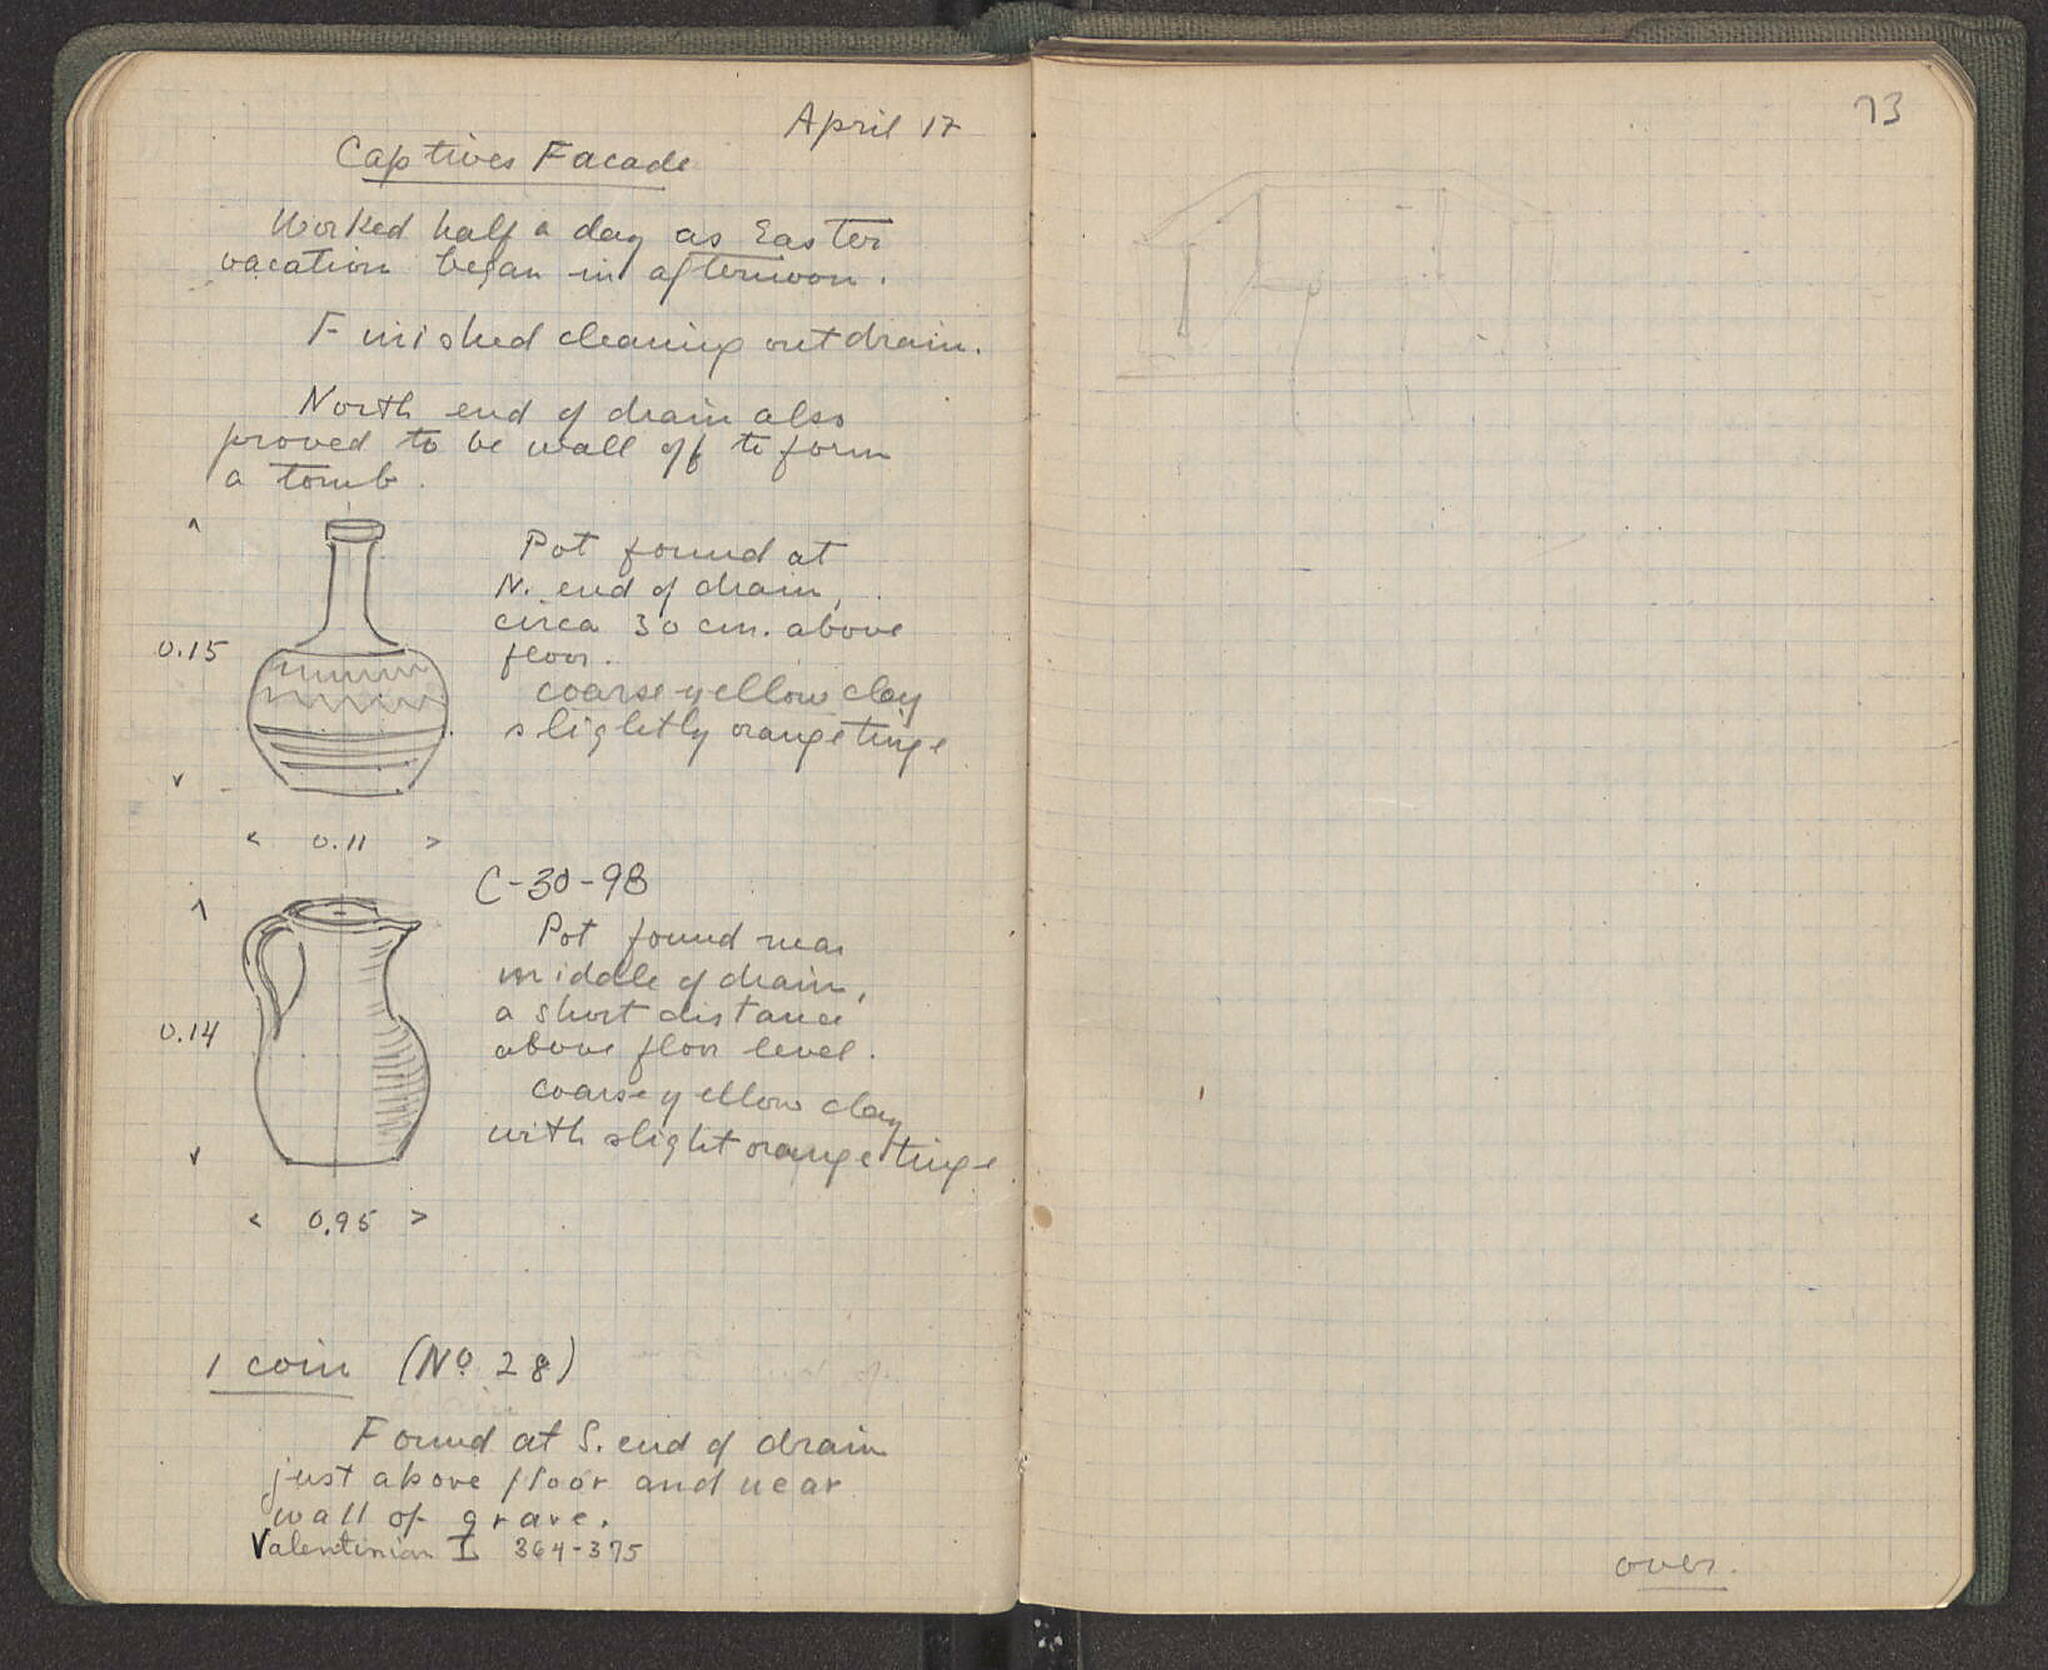 April 17
Captives Facade
Worked half a day as Easter
vacation began in afternoon.
Finished cleaning out drain.
North end of drain also
proved to be wall off to form
a tomb.
Pot found at
N. end of drain,
circa 30 cm. above
floor.
coarse yellow clay
slightly orange tinge
0.15
0.11
C-30-98
Pot found near
middle of drain,
a short distance
above floor level.
coarse yellow clay
with slight orange tinge
0.14
0.95
1 coin (No. 28)
Found at S. end of drain
just above floor and near
wall of grave.
Valentinian I 364-375
73
over.